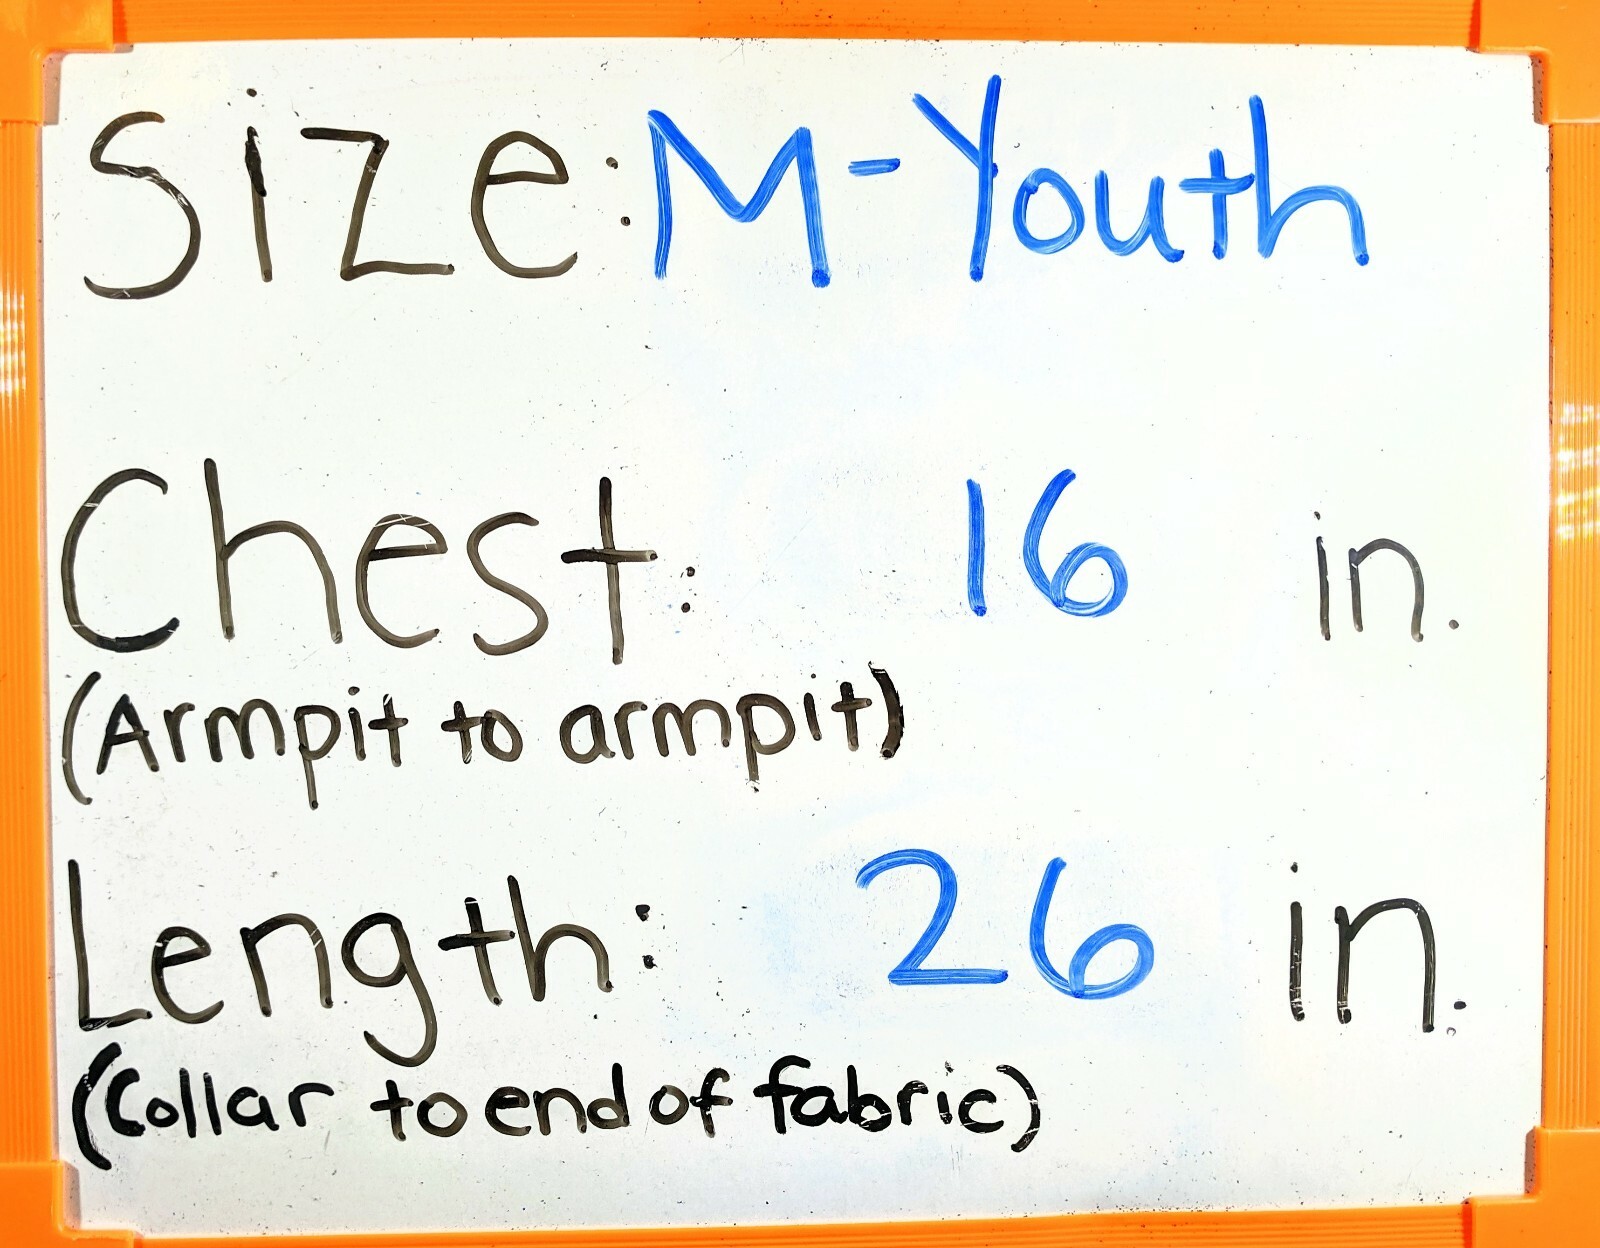 Size: M-Youth
Chest: 16 in.
(Armpit to armpit)
Length: 26 in.
(Collar to end of fabric)